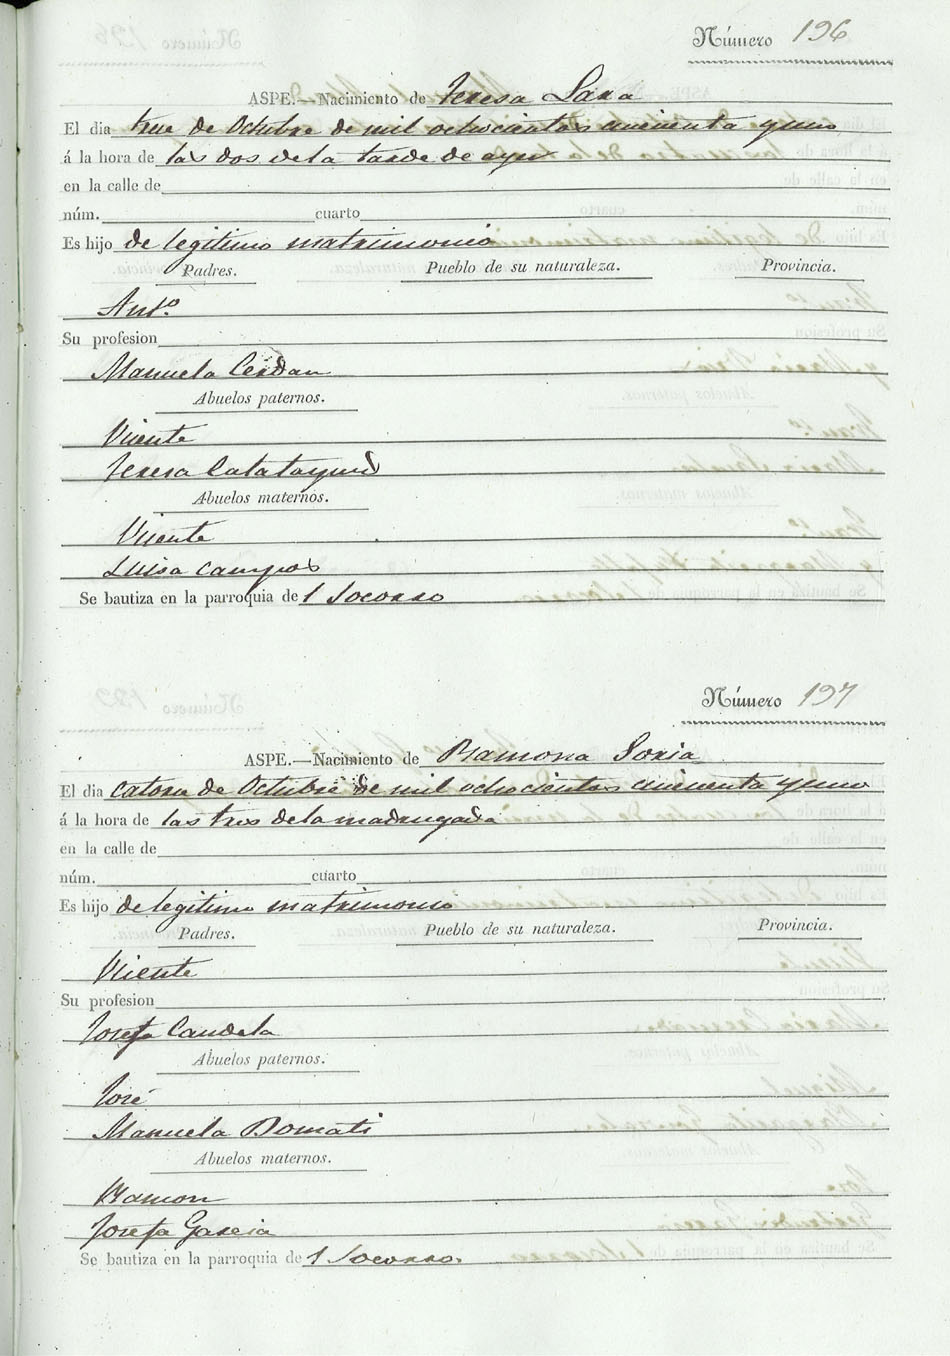 Número 196
ASPE.—Nacimiento de Teresa Lara
El dia trece de Octubre de mil ochocientos cincuenta y uno
á la hora de las dos de la tarde de ayer
en la calle de
núm. cuarto
Es hijo de legitimo matrimonio
Padres. Pueblo de su naturaleza. Provincia.
Antº
Su profesion
Manuela Cerdan
Abuelos paternos.
Vicente
Teresa Calatayud
Abuelos maternos.
Vicente
Luisa Campos
Se bautiza en la parroquia de l Socorro
Número 197
ASPE.—Nacimiento de Ramona Soria
El dia catorce de Octubre de mil ochocientos cincuenta y uno
á la hora de las tres de la madrugada
en la calle de
núm. cuarto
Es hijo de legitimo matrimonio
Padres. Pueblo de su naturaleza. Provincia.
Vicente
Su profesion
Josefa Candela
Abuelos paternos.
José
Manuela Bomati
Abuelos maternos.
Ramon
Josefa Garcia
Se bautiza en la parroquia de l Socorro.